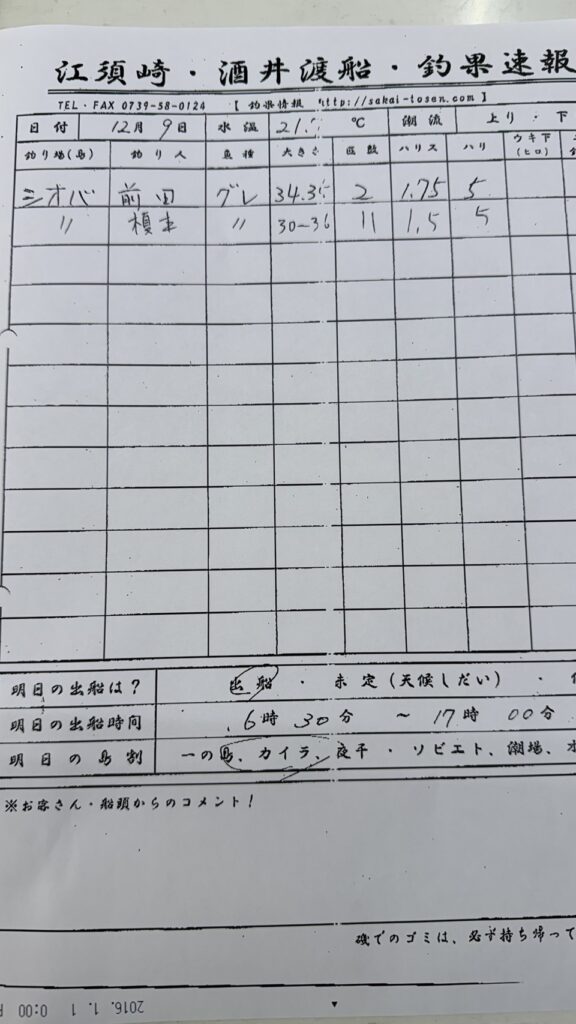 江須崎・酒井渡船・釣果速報
TEL・FAX 0739-58-0124 【 釣果情報 http://sakai-tosen.com 】
日付 12月 9日 水温 21. ℃ 潮流 上り・下
釣り場(島) 釣り人 魚種 大きさ 匹数 ハリス ハリ ウキ下(ヒロ)
シオバ 前田 グレ 34.35 2 1.75 5
〃 榎本 〃 30-36 11 1.5 5
明日の出船は? 出船・未定(天候しだい)・
明日の出船時間 6時 30分 ~ 17時 00分
明日の島割 一の島、カイラ、夜干・ソビエト、潮場、
※お客さん・船頭からのコメント!
磯でのゴミは、必ず持ち帰って
2016. 1. 1 0:00